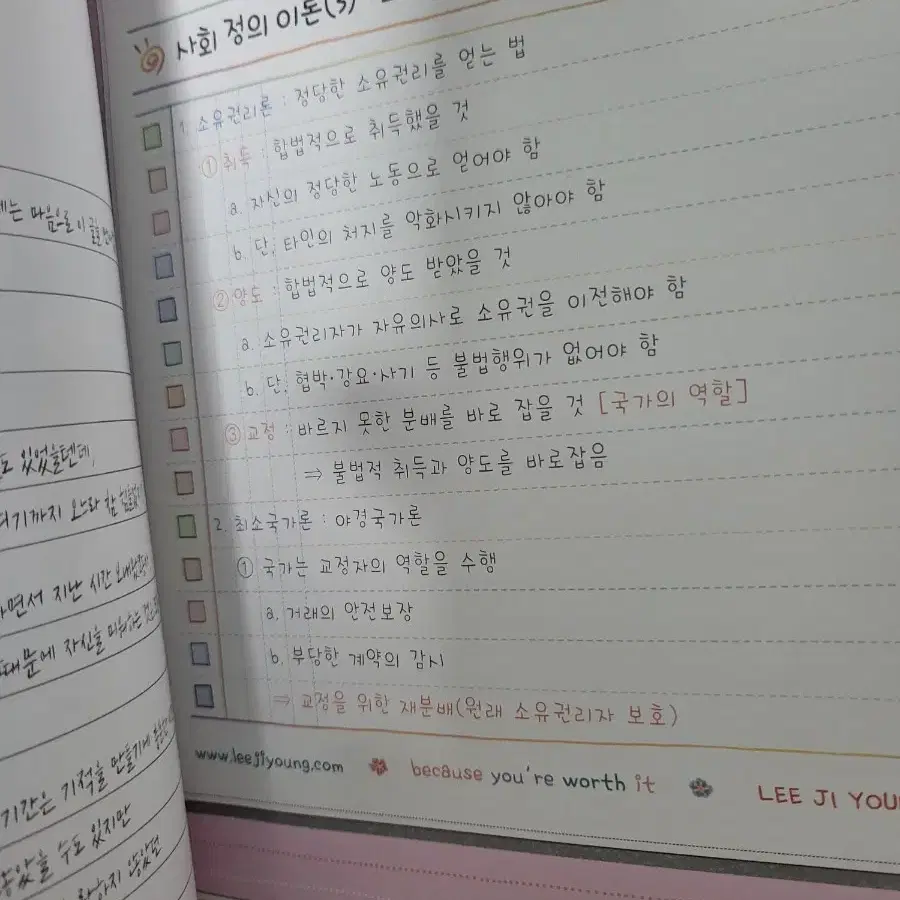 마음으로 이
도 있었을텐데,
여기까지 오느라 참
면서 지난 시간
때문에 자신을 미워하는
기간은 기적을 만들기에
수도 있지만
하지 않았
사회 정의 이론(3)
1. 소유권리론 : 정당한 소유권리를 얻는 법
① 취득 : 합법적으로 취득했을 것
a. 자신의 정당한 노동으로 얻어야 함
b. 단, 타인의 처지를 악화시키지 않아야 함
② 양도 : 합법적으로 양도 받았을 것
a. 소유권리자가 자유의사로 소유권을 이전해야 함
b. 단, 협박·강요·사기 등 불법행위가 없어야 함
③ 교정 : 바르지 못한 분배를 바로 잡을 것 [국가의 역할]
⇒ 불법적 취득과 양도를 바로잡음
2. 최소국가론 : 야경국가론
① 국가는 교정자의 역할을 수행
a. 거래의 안전보장
b. 부당한 계약의 감시
⇒ 교정을 위한 재분배(원래 소유권리자 보호)
www.leejiyoung.com because you're worth it LEE JI YOU